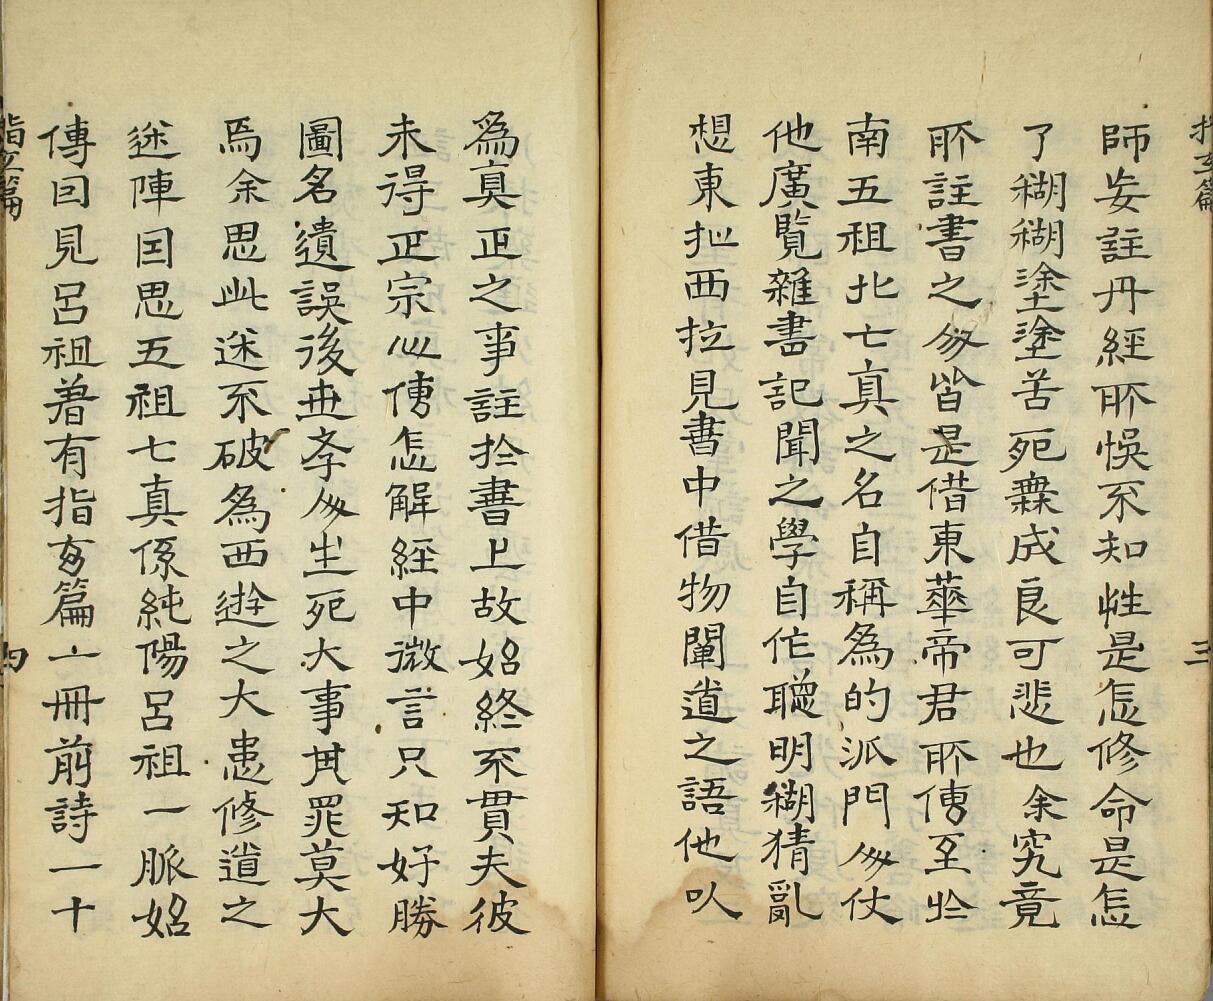 指玄篇
三
師妄註丹經所悞不知性是怎修命是怎
了糊糊塗塗苦死無成良可悲也余究竟
所註書之人皆是借東華帝君所傳至於
南五祖北七真之名自稱為的派門人仗
他廣覧雜書記聞之學自作聰明糊猜亂
想東扯西拉見書中借物闡道之語他以
為真正之事註於書上故始終不貫夫彼
未得正宗心傳怎解經中微言只知好勝
圖名遺誤後世李人生死大事其罪莫大
焉余思此迷不破為西遊之大患修道之
迷陣因思五祖七真係純陽呂祖一脈始
傳因見呂祖著有指玄篇一冊前詩一十
指玄篇
四